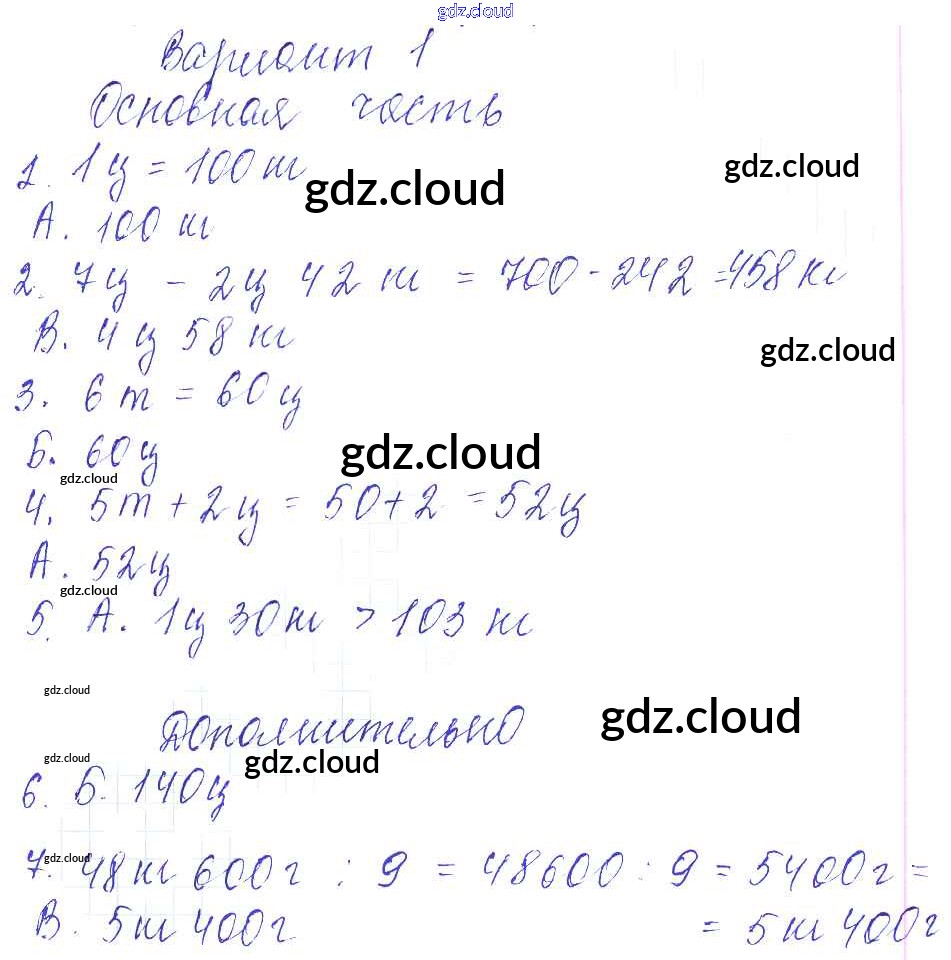 gdz.cloud
Вариант 1
Основная часть
1. 1 ц = 100 кг
gdz.cloud
gdz.cloud
А. 100 кг
2. 7 ц - 2 ц 42 кг = 700 - 242 = 458 кг
В. 4 ц 58 кг
gdz.cloud
3. 6 т = 60 ц
Б. 60 ц
gdz.cloud
gdz.cloud
4. 5 т + 2 ц = 50 + 2 = 52 ц
А. 52 ц
gdz.cloud
5. А. 1 ц 30 кг > 103 кг
gdz.cloud
Дополнительно
gdz.cloud
gdz.cloud
gdz.cloud
6. Б. 140 ц
gdz.cloud
7. 48 кг 600 г : 9 = 48600 : 9 = 5400 г =
= 5 кг 400 г
В. 5 кг 400 г